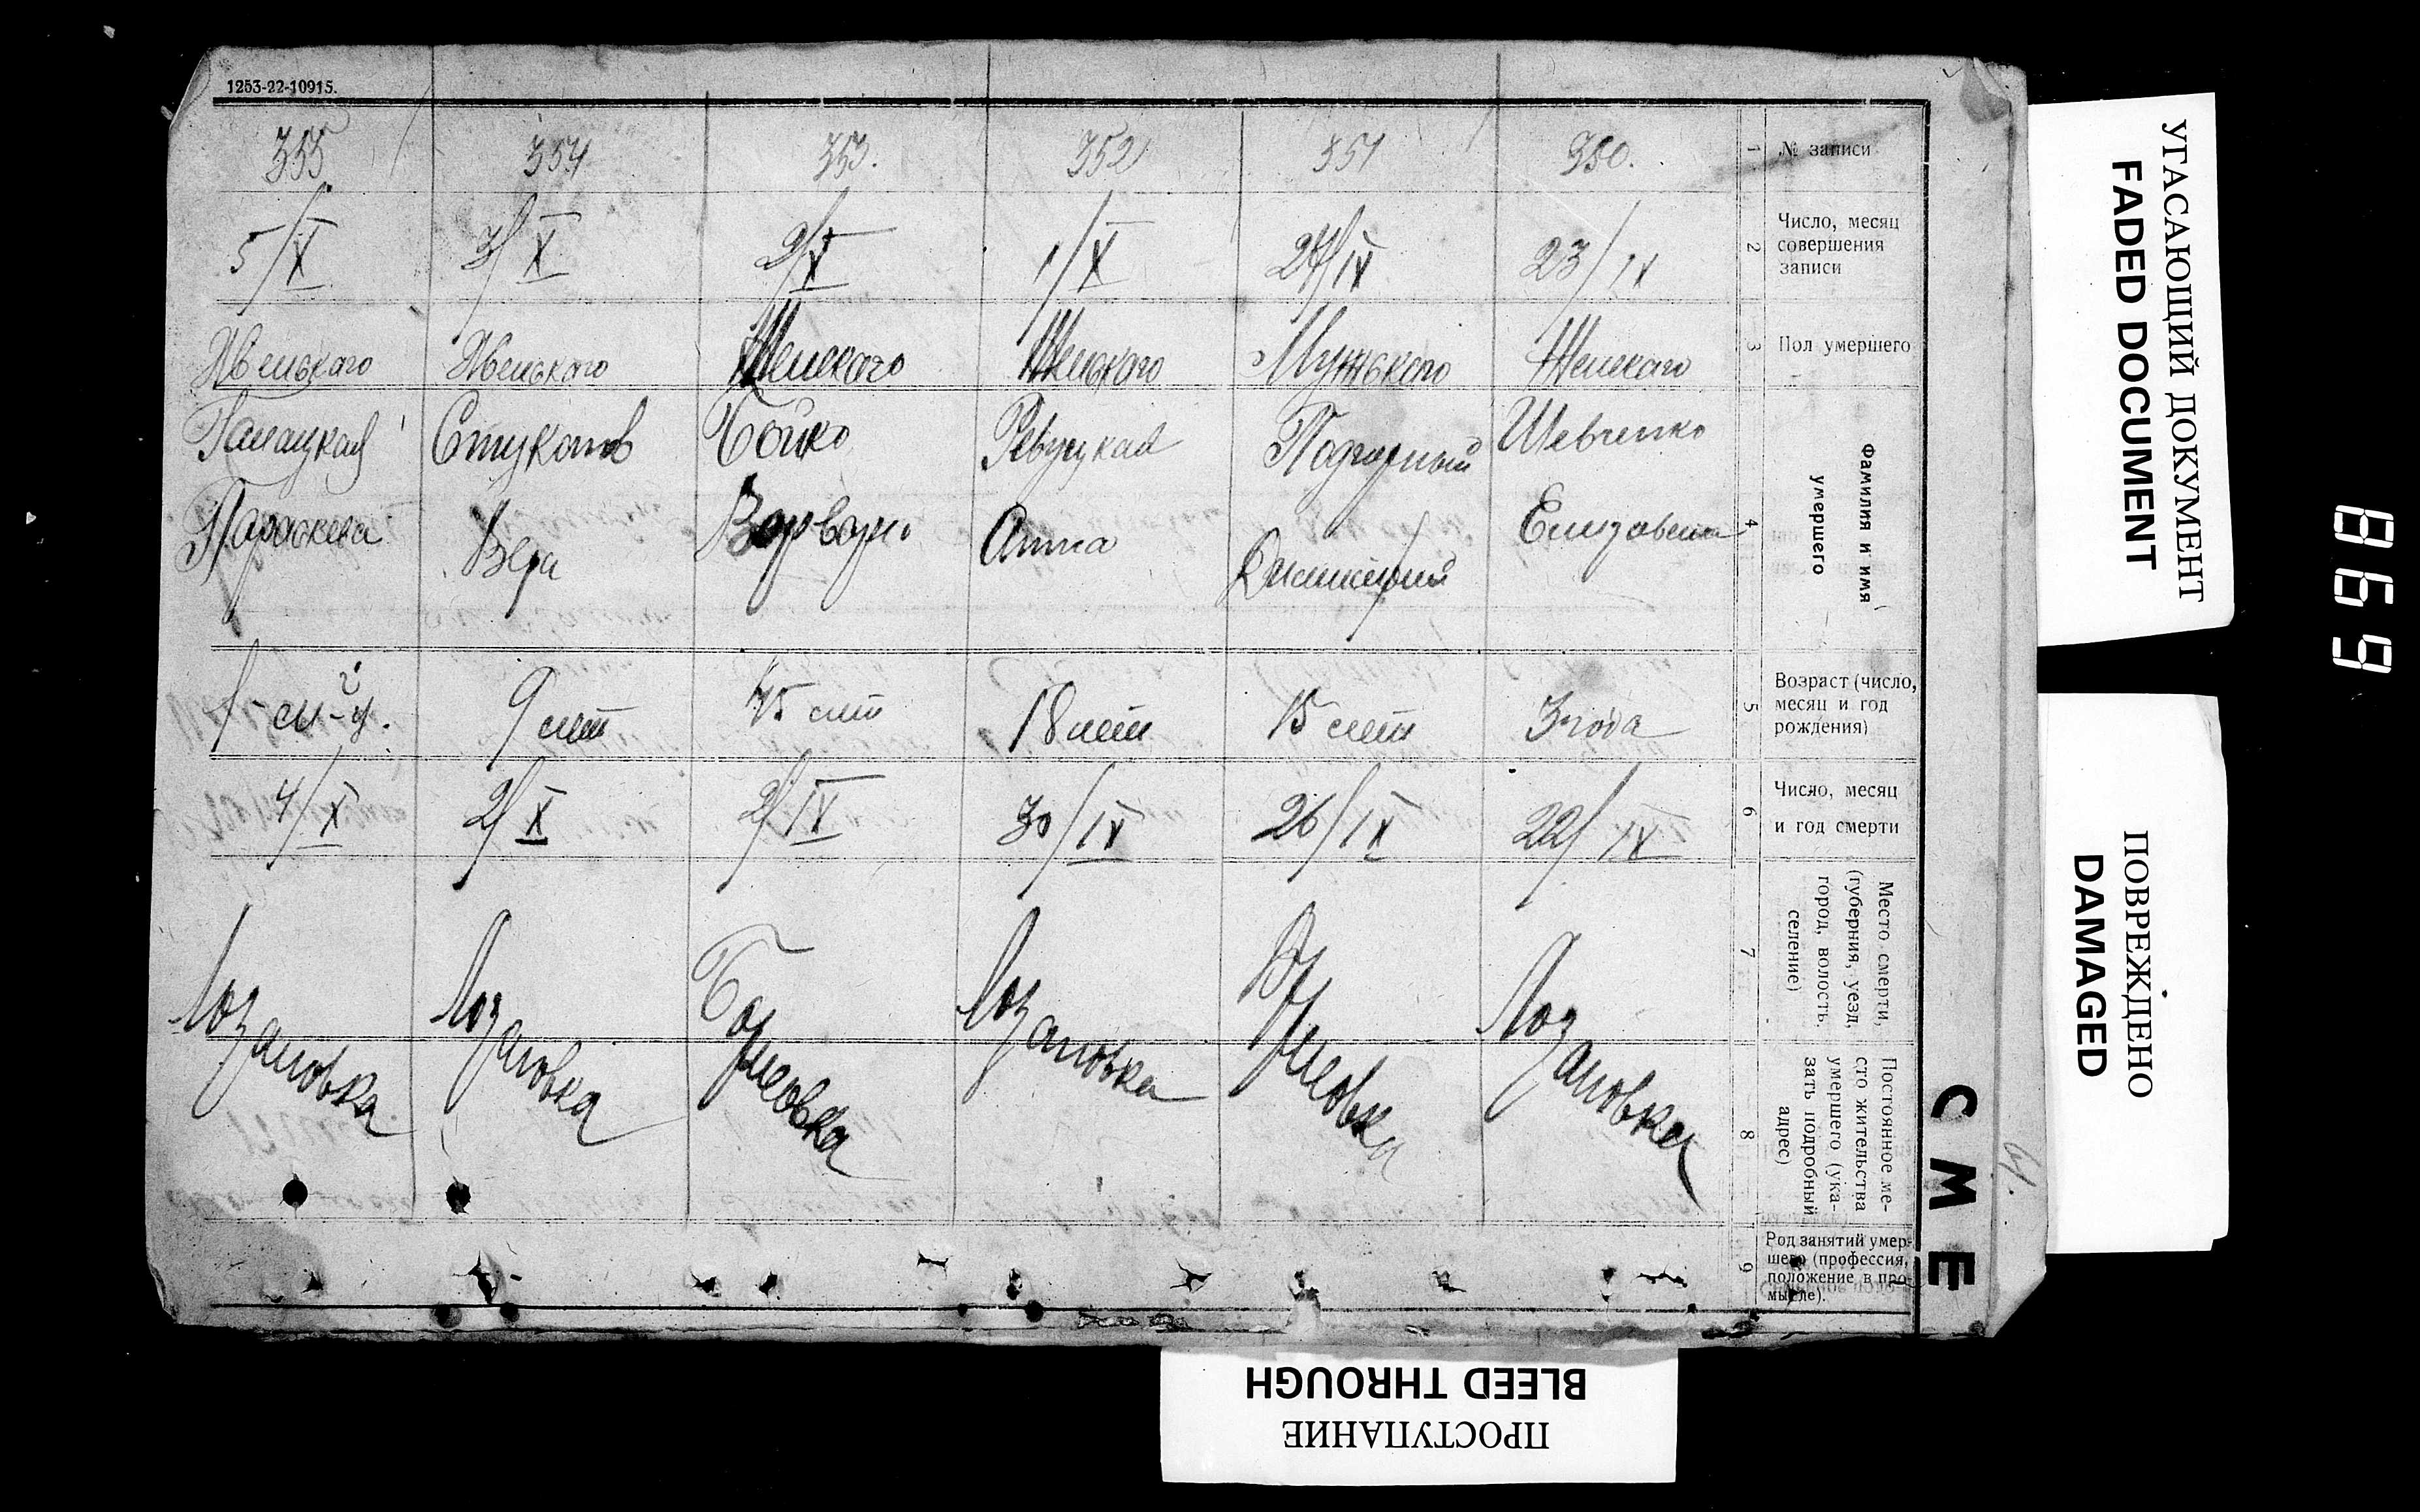 1253-22-10915.
355 354 353. 352 351 350. 1 № записи
5/X 3/X 2/X 1/X 27/IX 23/IX 2 Число, месяц
совершения
записи
Женского Женского Женского Женского Мужского Женского 3 Пол умершего
Галацкая Стукалов Бойко Ревуцкая Подгорный Шевченко
Параскева Вера Варвара Анна Димитрий Елизавета 4 Фамилия и имя
умершего
9 лет 45 лет 18 лет 15 лет 3 года 5 Возраст (число,
месяц и год
рождения)
4/X 2/X 2/IX 30/IX 26/IX 22/IX 6 Число, месяц
и год смерти
Лозановка Лозановка Лозановка Лозановка 7 Место смерти,
(губерния, уезд,
город, волость,
селение)
8 Постоянное ме-
сто жительства
умершего (ука-
зать подробный
адрес)
9 Род занятий умер-
шего (профессия,
положение в про-
мысле).
СМЕ
61.
УГАСАЮЩИЙ ДОКУМЕНТ
FADED DOCUMENT
ПОВРЕЖДЕНО
DAMAGED
BLEED THROUGH
ПРОСТУПАНИЕ
869